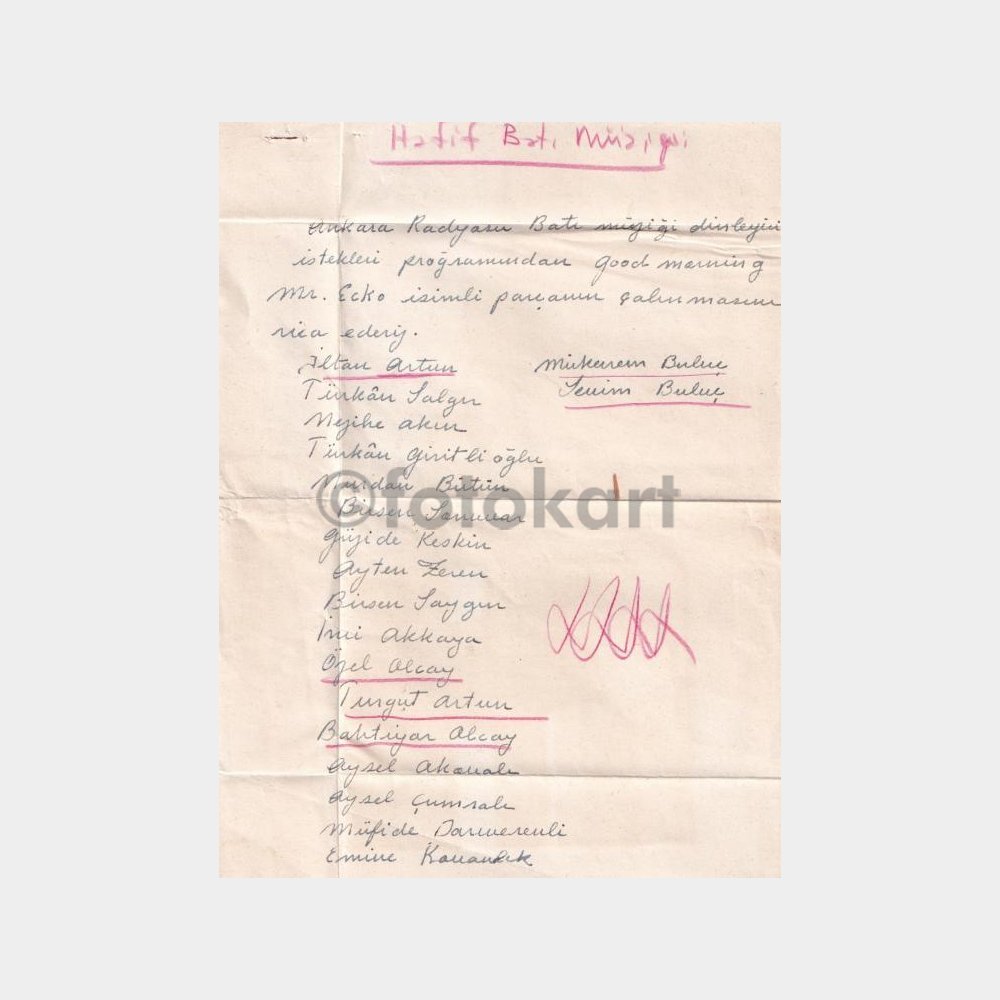 Hafif Batı Müziği
Ankara Radyosu Batı müziği dinleyici
istekleri proğramından good morning
Mr. Ecko isimli parçanın çalınmasını
rica ederiz.
İltan Artun
Mükerrem Buluç
Türkân Salgır
Sevim Buluç
Nezihe Akın
Türkân Giritlioğlu
Nurdan Bütün
©fotokart
Birsen
Güzide Keskin
Ayten Zeren
Birsen Saygın
Akkaya
Özel Alcay
Turgut Artun
Bahtiyar Alcay
Aysel
Aysel Çumralı
Müfide
Emine